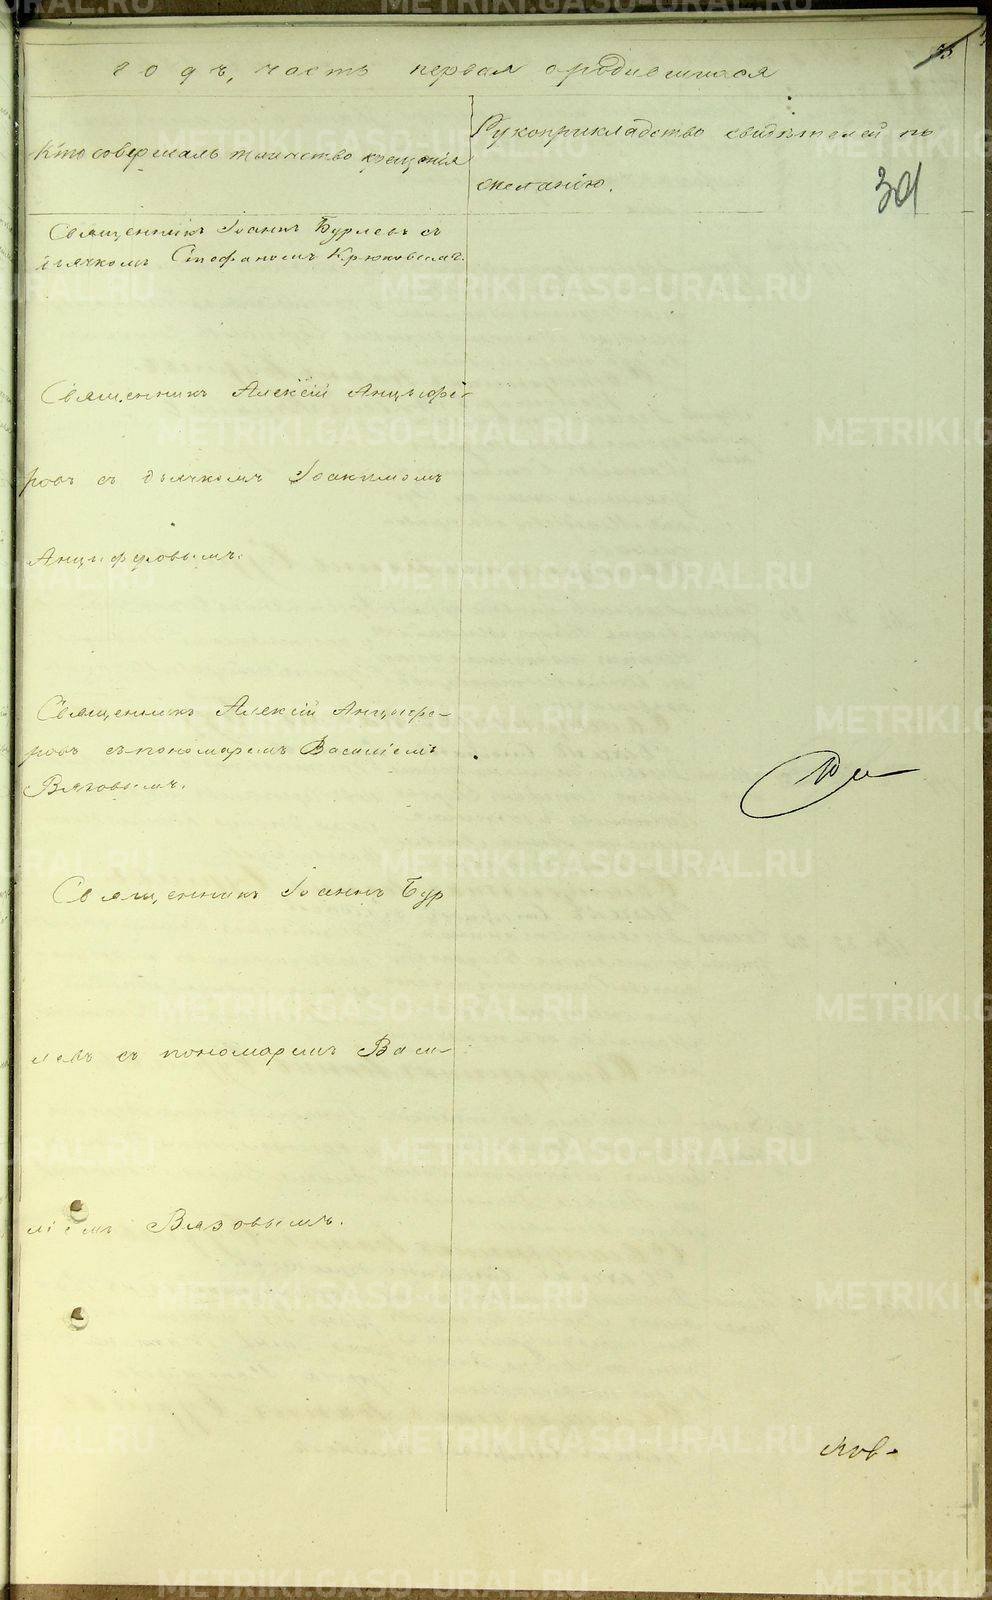 годъ, часть первая о родившихся
Кто совершалъ таинство крещенія
Рукоприкладство свидѣтелей по
желанію.
301
Священникъ Іоаннъ Бурлевъ съ
дьячкомъ Стефаномъ Крюковымъ.
Священникъ Алексій Анцыфе-
ровъ съ дьячкомъ Іоакимомъ
Анцыферовымъ.
Священникъ Алексій Анцыфе-
ровъ съ пономаремъ Василіемъ
Вязовымъ.
Священникъ Іоаннъ Бур
левъ съ пономаремъ Васи-
ліемъ Вязовымъ.
METRIKI.GASO-URAL.RU